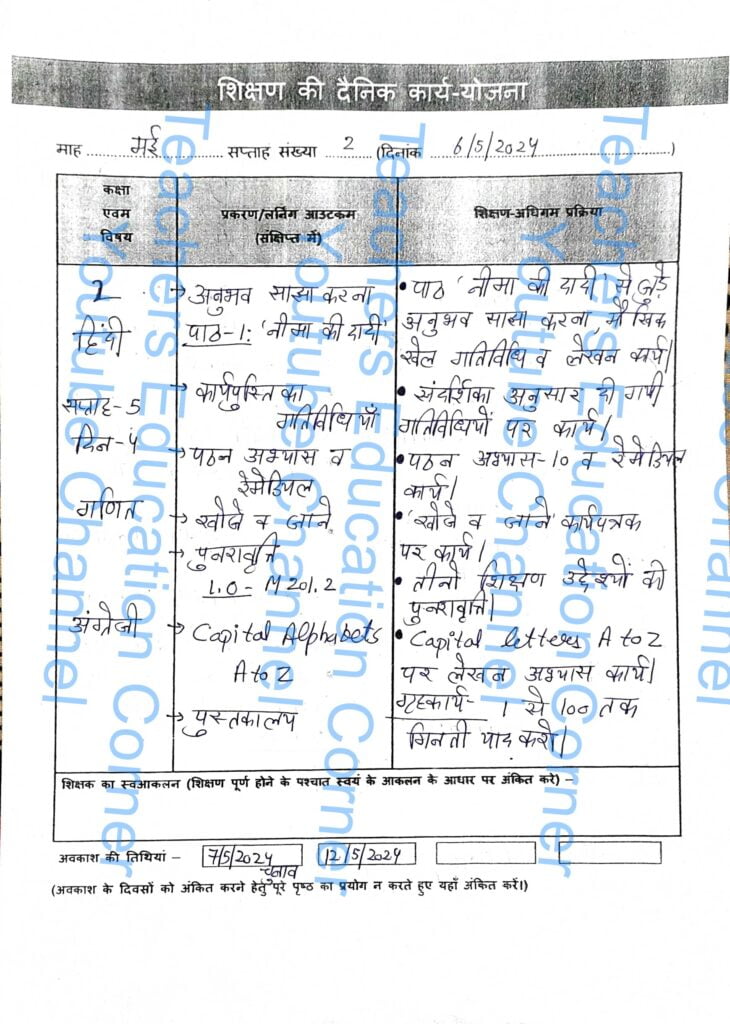 शिक्षण की दैनिक कार्य-योजना
माह मई सप्ताह संख्या 2 (दिनांक 6/5/2024)
कक्षा
एवम
विषय
प्रकरण/लर्निंग आउटकम
(संक्षिप्त में)
शिक्षण-अधिगम प्रक्रिया
2
हिंदी
सप्ताह-5
दिन-4
गणित
अंग्रेजी
→ अनुभव साझा करना
पाठ-1: 'नीमा की दादी'
→ कार्यपुस्तिका
गतिविधियाँ
→ पठन अभ्यास व
रेमेडियल
→ खोजें व जाने
→ पुनरावृत्ति
L.O- M201.2
→ Capital Alphabets
A to Z
→ पुस्तकालय
• पाठ 'नीमा की दादी' से जुड़े
अनुभव साझा करना, मौखिक
खेल गतिविधि व लेखन कार्य।
• संदर्शिका अनुसार दी गयी
गतिविधियों पर कार्य।
• पठन अभ्यास-10 व रेमेडियल
कार्य।
• 'खोजें व जाने' कार्यपत्रक
पर कार्य।
• तीनो शिक्षण उद्देश्यों की
पुनरावृत्ति।
• Capital letters A to Z
पर लेखन अभ्यास कार्य।
गृहकार्य- 1 से 100 तक
गिनती याद करो।
शिक्षक का स्वआकलन (शिक्षण पूर्ण होने के पश्चात स्वयं के आकलन के आधार पर अंकित करे) –
अवकाश की तिथियां – 7/5/2024 12/5/2024
चुनाव
(अवकाश के दिवसों को अंकित करने हेतु पूरे पृष्ठ का प्रयोग न करते हुए यहाँ अंकित करें।)
Teachers Education Corner
Youtube Channel
Teachers Education Corner
Youtube Channel
Teachers Education Corner
Youtube Channel
Channel